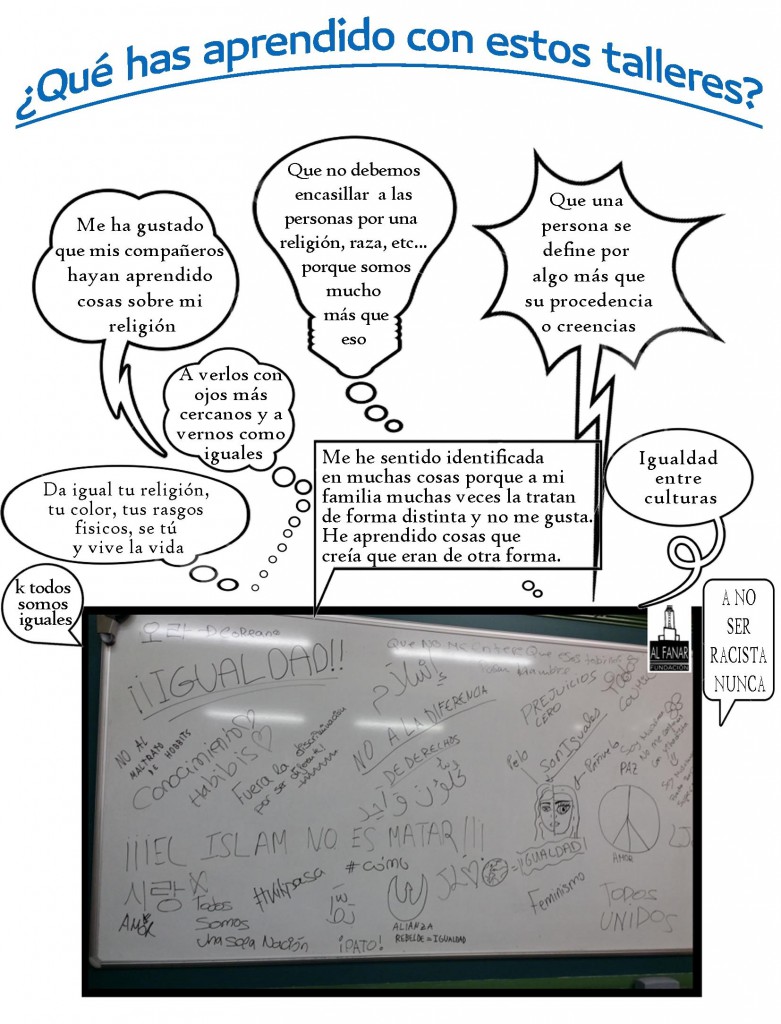 ¿Qué has aprendido con estos talleres?
Me ha gustado
que mis compañeros
hayan aprendido
cosas sobre mi
religión
Que no debemos
encasillar a las
personas por una
religión, raza, etc...
porque somos
mucho
más que
eso
Que una
persona se
define por
algo más que
su procedencia
o creencias
A verlos con
ojos más
cercanos y a
vernos como
iguales
Me he sentido identificada
en muchas cosas porque a mi
familia muchas veces la tratan
de forma distinta y no me gusta.
He aprendido cosas que
creía que eran de otra forma.
Igualdad
entre
culturas
Da igual tu religión,
tu color, tus rasgos
fisicos, se tú
y vive la vida
k todos
somos
iguales
A NO
SER
RACISTA
NUNCA
AL FANAR
FUNDACIÓN
¡¡IGUALDAD!!
NO AL
MALTRATO
DE HOBBITS
Conocimiento
Habibis
Fuera la discriminación
por ser diferente
إسلام
NO A LA DIFERENCIA
DE DERECHOS
PREJUICIOS
CERO
Son Iguales
Pelo
Pañuelo
PAZ
AMOR
¡¡¡EL ISLAM NO ES MATAR!!!
사랑
AMOR
Todos
Somos
una sopa Nación
#Whipasa
#cómo
¡PATO!
ALIANZA
REBELDE = IGUALDAD
= ¡IGUALDAD!
Feminismo
TODOS
UNIDOS